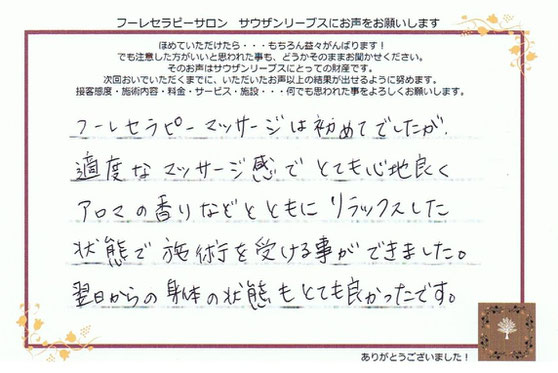 フーレセラピーサロン　サウザンリーブスにお声をお願いします
ほめていただけたら・・・もちろん益々がんばります！
でも注意した方がいいと思われた事も、どうかそのままお聞かせください。
そのお声はサウザンリーブスにとっての財産です。
次回おいでいただくまでに、いただいたお声以上の結果が出せるように努めます。
接客態度・施術内容・料金・サービス・施設・・・何でも思われた事をよろしくお願いします。
フーレセラピーマッサージは初めてでしたが、
適度なマッサージ感でとても心地良く
アロマの香りなどとともにリラックスした
状態で施術を受ける事ができました。
翌日からの身体の状態もとても良かったです。
ありがとうございました！